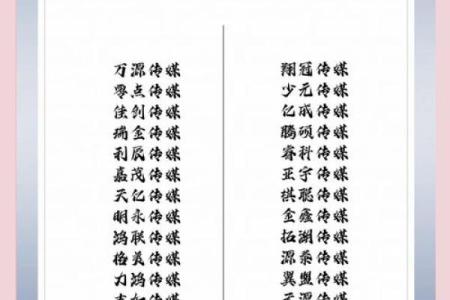 万源传媒
零点传媒
佳创传媒
瑞金传媒
利辰传媒
嘉茂传媒
天亿传媒
明永传媒
鸿联传媒
格美传媒
力鸿传媒
翔冠传媒
少元传媒
亿成传媒
腾硕传媒
睿科传媒
亚宇传媒
棋聪传媒
金鑫传媒
拓湖传媒
源泰传媒
翼盟传媒